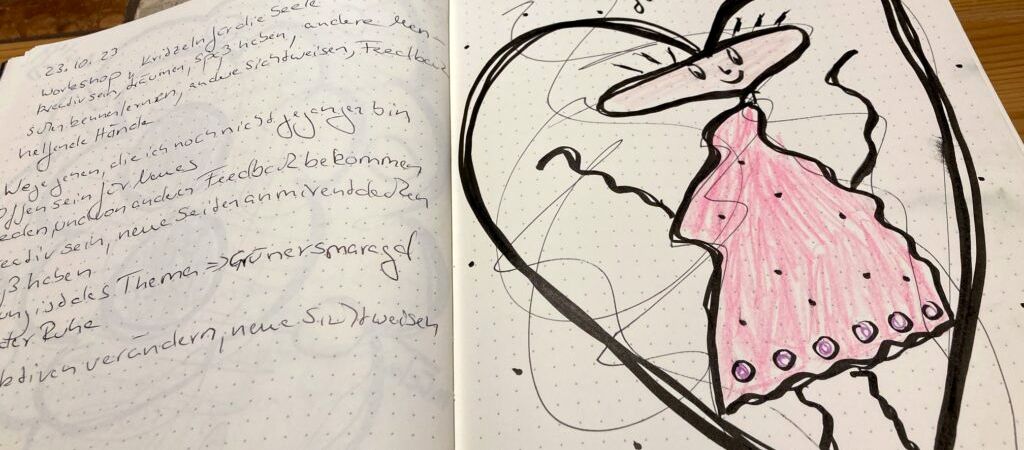 23.10.23
Workshop Kritzeln für die Seele
kreativ sein, träumen, spaß haben, andere Men-
schen kennenlernen, andere Sichtweisen, Feedback
helfende Hände
Wege gehen, die ich noch nicht gegangen bin
offen sein für Neues
und von anderen Feedback bekommen
kreativ sein, neue Seiten an mir entdecken
ß haben
ist das Thema => Grüner smaragd
der Ruhe
verändern, neue Sichtweisen